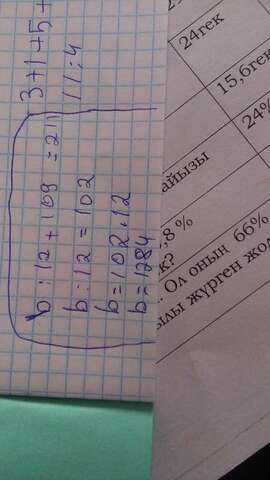 3+1+5+
11:4
b:12+109=211
b:12=102
b=102.12
b=1284
24гек
15,6ге
24%
айызы
,8%
к?
. Ол оның 66%
ылы жүрген жол